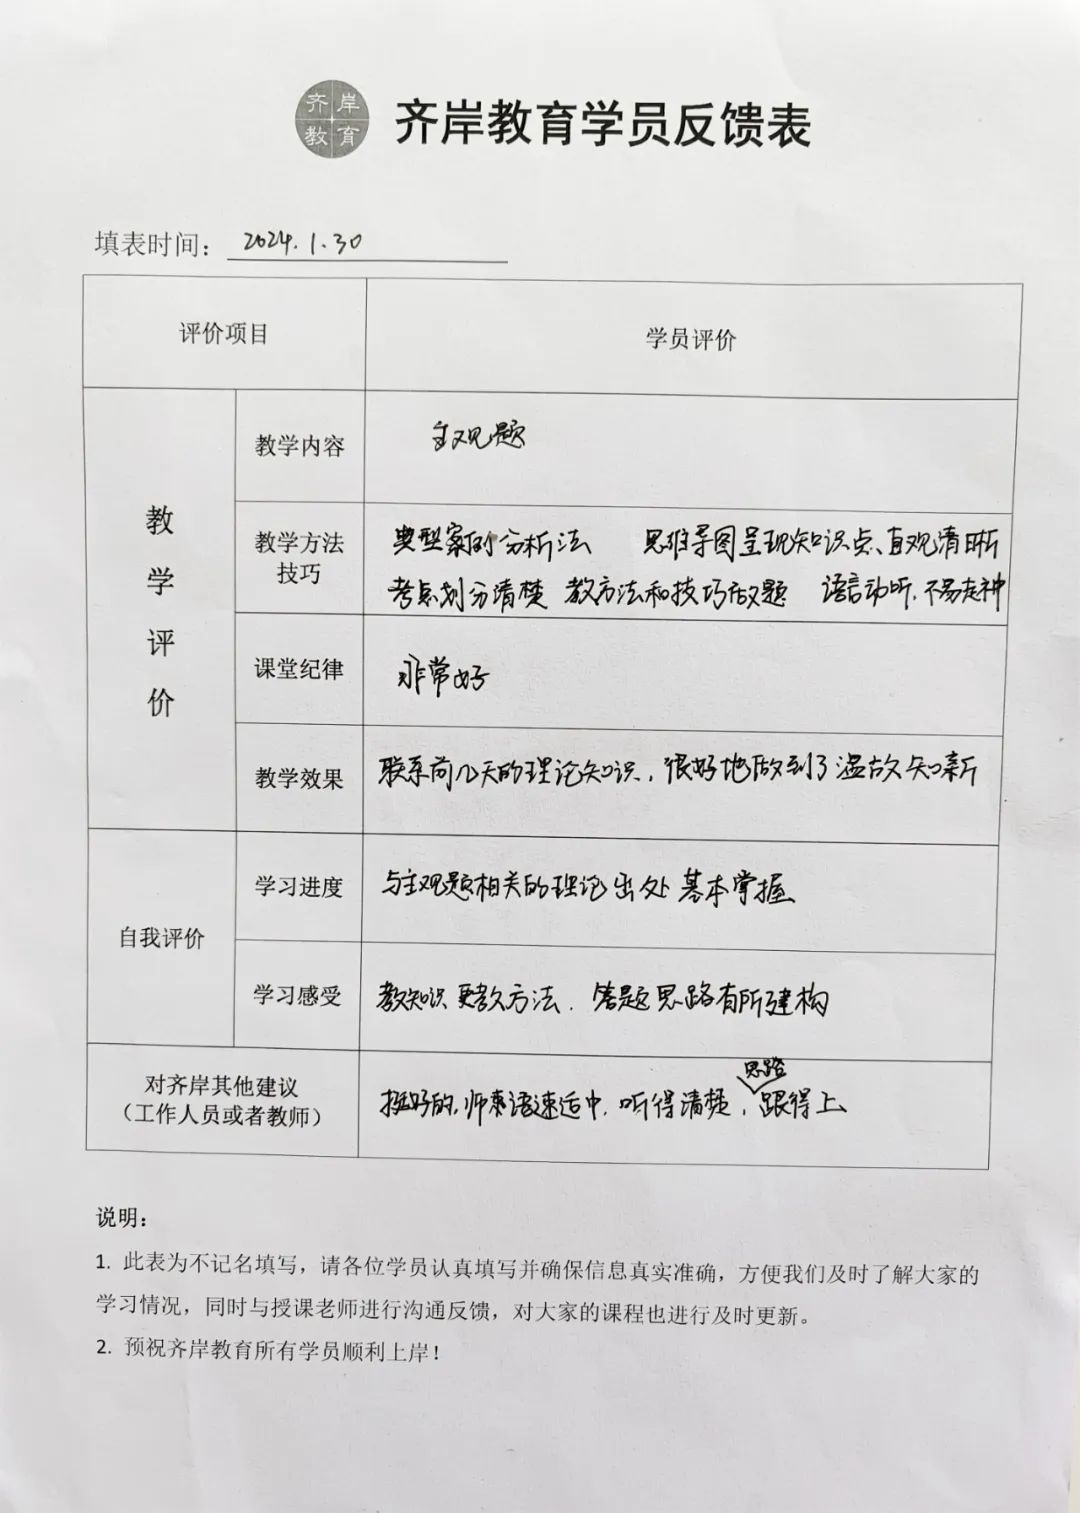 齐岸
教育
齐岸教育学员反馈表
填表时间：2024.1.30
评价项目
学员评价
教学评价
教学内容
主观题
教学方法
技巧
典型案例分析法 思维导图呈现知识点、直观清晰
考点划分清楚 教方法和技巧做题 语言动听，不易走神
课堂纪律
非常好
教学效果
联系前几天的理论知识，很好地做到了温故知新
自我评价
学习进度
与主观题相关的理论出处基本掌握
学习感受
教知识更教方法，答题思路有所建构
对齐岸其他建议
（工作人员或者教师）
挺好的，师表语速适中，听得清楚，思路跟得上
说明：
1. 此表为不记名填写，请各位学员认真填写并确保信息真实准确，方便我们及时了解大家的
学习情况，同时与授课老师进行沟通反馈，对大家的课程也进行及时更新。
2. 预祝齐岸教育所有学员顺利上岸！